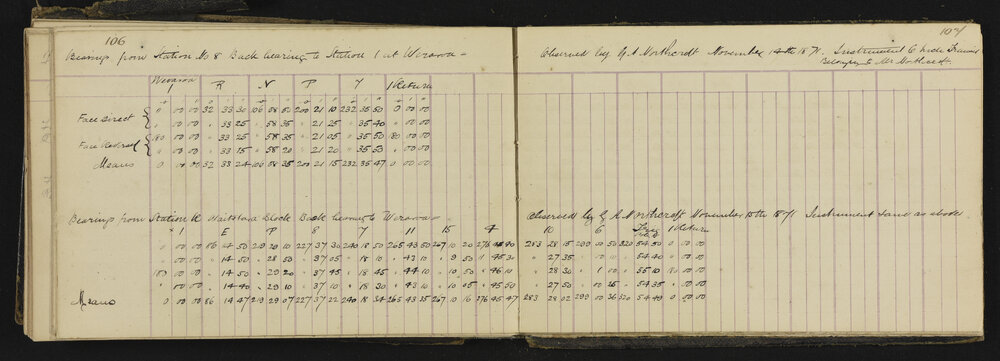 106
107
Bearings from Station No 8 Back bearing to Station 1 at Weraroa -
Observed by G. A. Northcroft November 14th 1871. Instrument 6 inch Transit
Belonging to Mr Northcroft.
Weraroa
1 R N P 7 1 Return
Face Direct 0 00 00 32 33 30 106 58 50 200 21 10 232 35 50 0 00 00
" 00 00 " 33 25 " 58 35 " 21 25 " 35 40 " 00 00
Face Reversed 180 00 00 " 33 25 " 58 35 " 21 05 " 35 50 80 00 00
" 00 00 " 33 15 " 58 20 " 21 20 " 35 50 " 00 00
Means 0 00 00 32 33 24 106 58 35 200 21 15 232 35 47 0 00 00
Bearings from Station Block Back bearing to Weraroa -
Observed by G. A. Northcroft November 15th 1871 Instrument same as above
1 E P 8 7 11 15 4 10 6 1 Return
0 00 00 86 14 50 219 29 10 227 37 30 240 18 50 265 43 50 267 10 20 276 45 40 283 28 15 299 00 50 320 54 50 0 00 00
" 00 00 " 14 50 " 28 50 " 37 05 " 18 10 " 43 10 " 9 50 " 45 30 " 27 35 " 00 10 " 54 40 " 00 00
180 00 00 " 14 50 " 29 20 " 37 45 " 18 45 " 44 10 " 10 50 " 46 10 " 28 30 " 1 00 " 55 10 80 00 00
" 00 00 " 14 40 " 29 10 " 37 10 " 18 30 " 43 10 " 10 05 " 45 50 " 27 50 " 00 25 " 54 35 " 00 00
Means 0 00 00 86 14 47 219 29 07 227 37 22 240 18 34 265 43 35 267 10 16 276 45 47 283 28 02 299 00 36 320 54 49 0 00 00